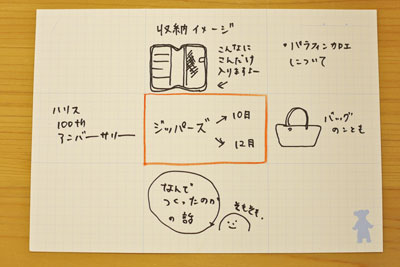 収納イメージ
こんなに
こんだけ
入りますよー
・パラフィンカロエ
について
ハリス
100th
アニバーサリー
ジッパーズ
10月
12月
バッグ
のことも
なんで
つくったのか
の話
そもそも、